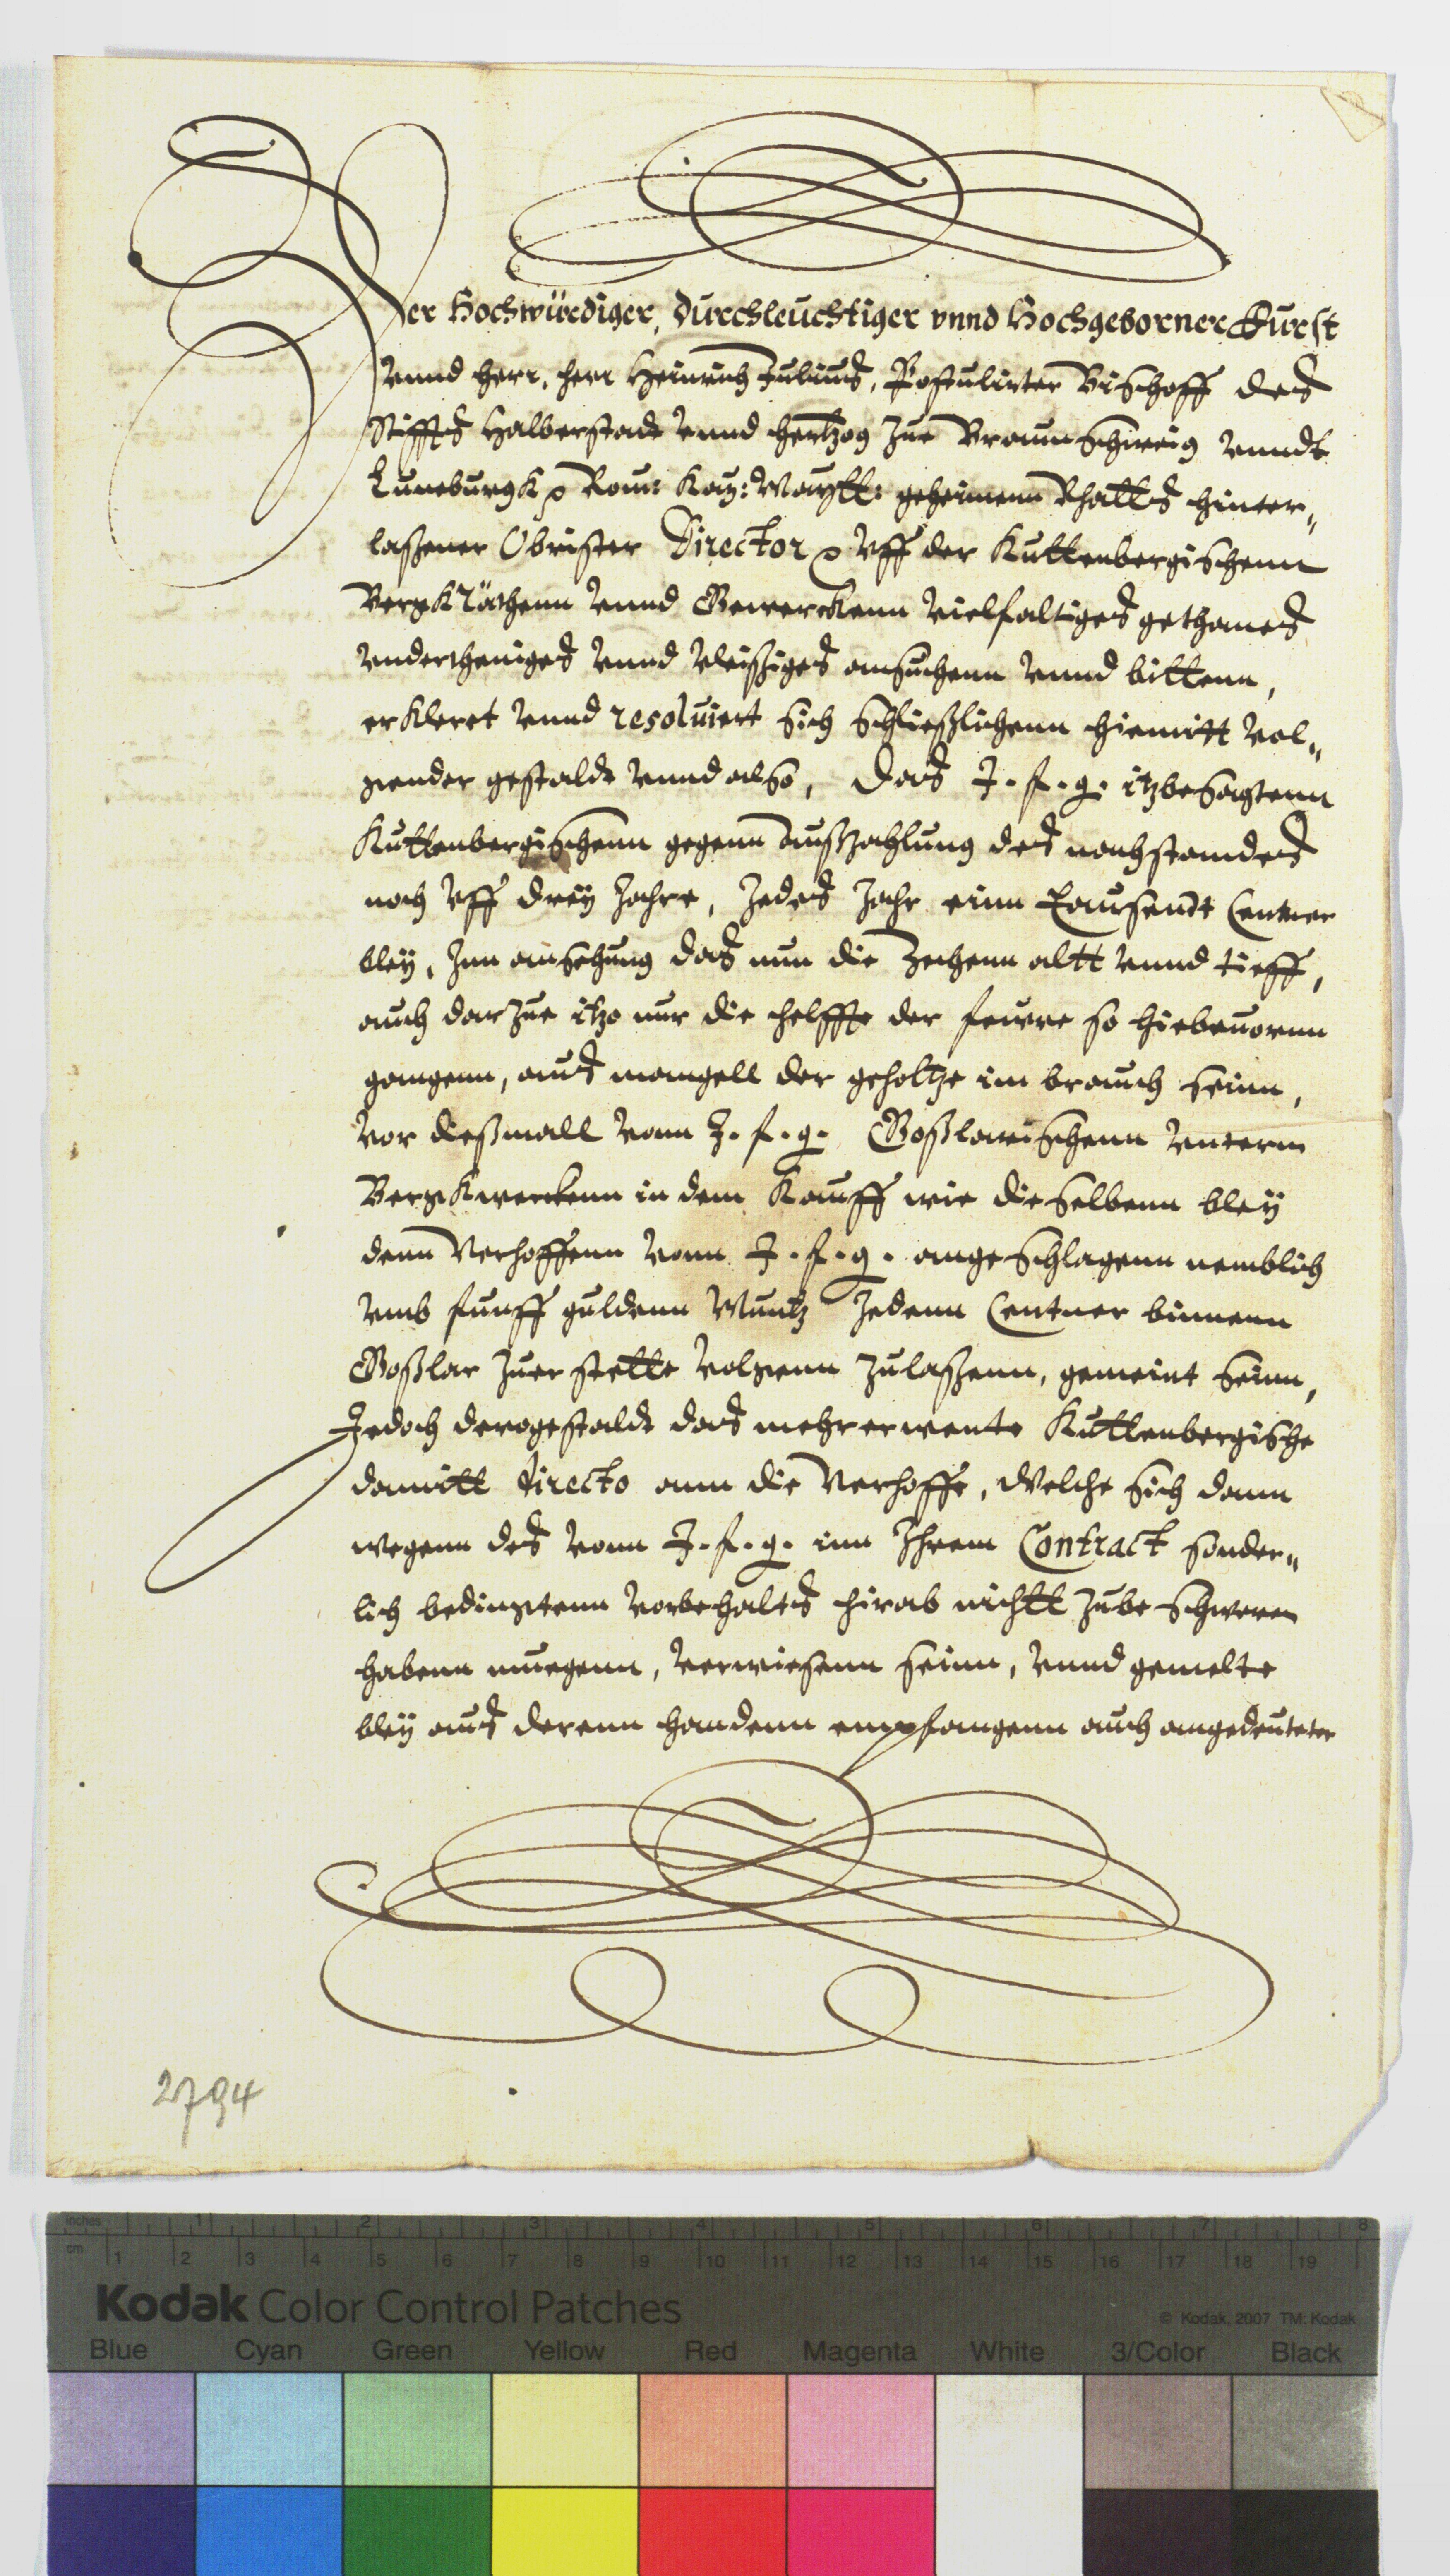 Der Hochwürdiger, Durchleuchtiger vnnd Hochgeborner Fürst
vnnd herr, herr Heinrich Julius, Postulirter Bischoff des
Stiffts Halberstadt vnnd hertzog zue Braunschweig vnndt
Luneburgk ꝛ Rom: Kay: Maytt: geheimenn Rhatts hinter„
laßener Obrister Director ꝛ vff der Kuttenbergischenn
Bergkräthenn vnnd Gewerckenn vielfaltiges gethanes
vndertheniges vnnd vleißiges ansuchenn vnnd bittenn,
erkleret vnnd resoluiert sich schließlichenn hiemitt vol„
gender gestaldt vnnd also, das J. f. g. itzbesagtenn
Kuttenbergischenn gegenn außzahlung des nachstandes
noch vff drey Jahre, Jedes Jahr einn Tausendt Centner
bley, Inn ansehung das nun die Zechenn altt vnnd tieff,
auch dar zue itzo nur die helffte der feuere so hiebeuornn
gangenn, aus mangell der geholtze im brauch seinn,
vor dießmall vonn J. f. g. Goßlarischenn vnterm
Bergkwerckenn in dem Kauff wie dieselbenn bley
denn Verhoffenn vonn J. f. g. angeschlagenn nemblich
vmb funff guldenn Muntz Jedenn Centner binnenn
Goßlar zuer stette volgenn zulaßenn, gemeint seinn,
Jedoch derogestaldt das mehrerwente Kuttenbergische
damitt directo ann die Verhoffe, welche sich dann
wegenn des vonn J. f. g. inn Ihrem Contract sonder„
lich bedingtenn vorbehalts hirab nichtt zubeschweren
habenn muegenn, verwiesenn seinn, vnnd gemelte
bley aus derenn handenn empfangenn auch angedeuteter
2794
inches 1 2 3 4 5 6 7 8
cm 1 2 3 4 5 6 7 8 9 10 11 12 13 14 15 16 17 18 19
Kodak Color Control Patches © Kodak, 2007 TM: Kodak
Blue Cyan Green Yellow Red Magenta White 3/Color Black